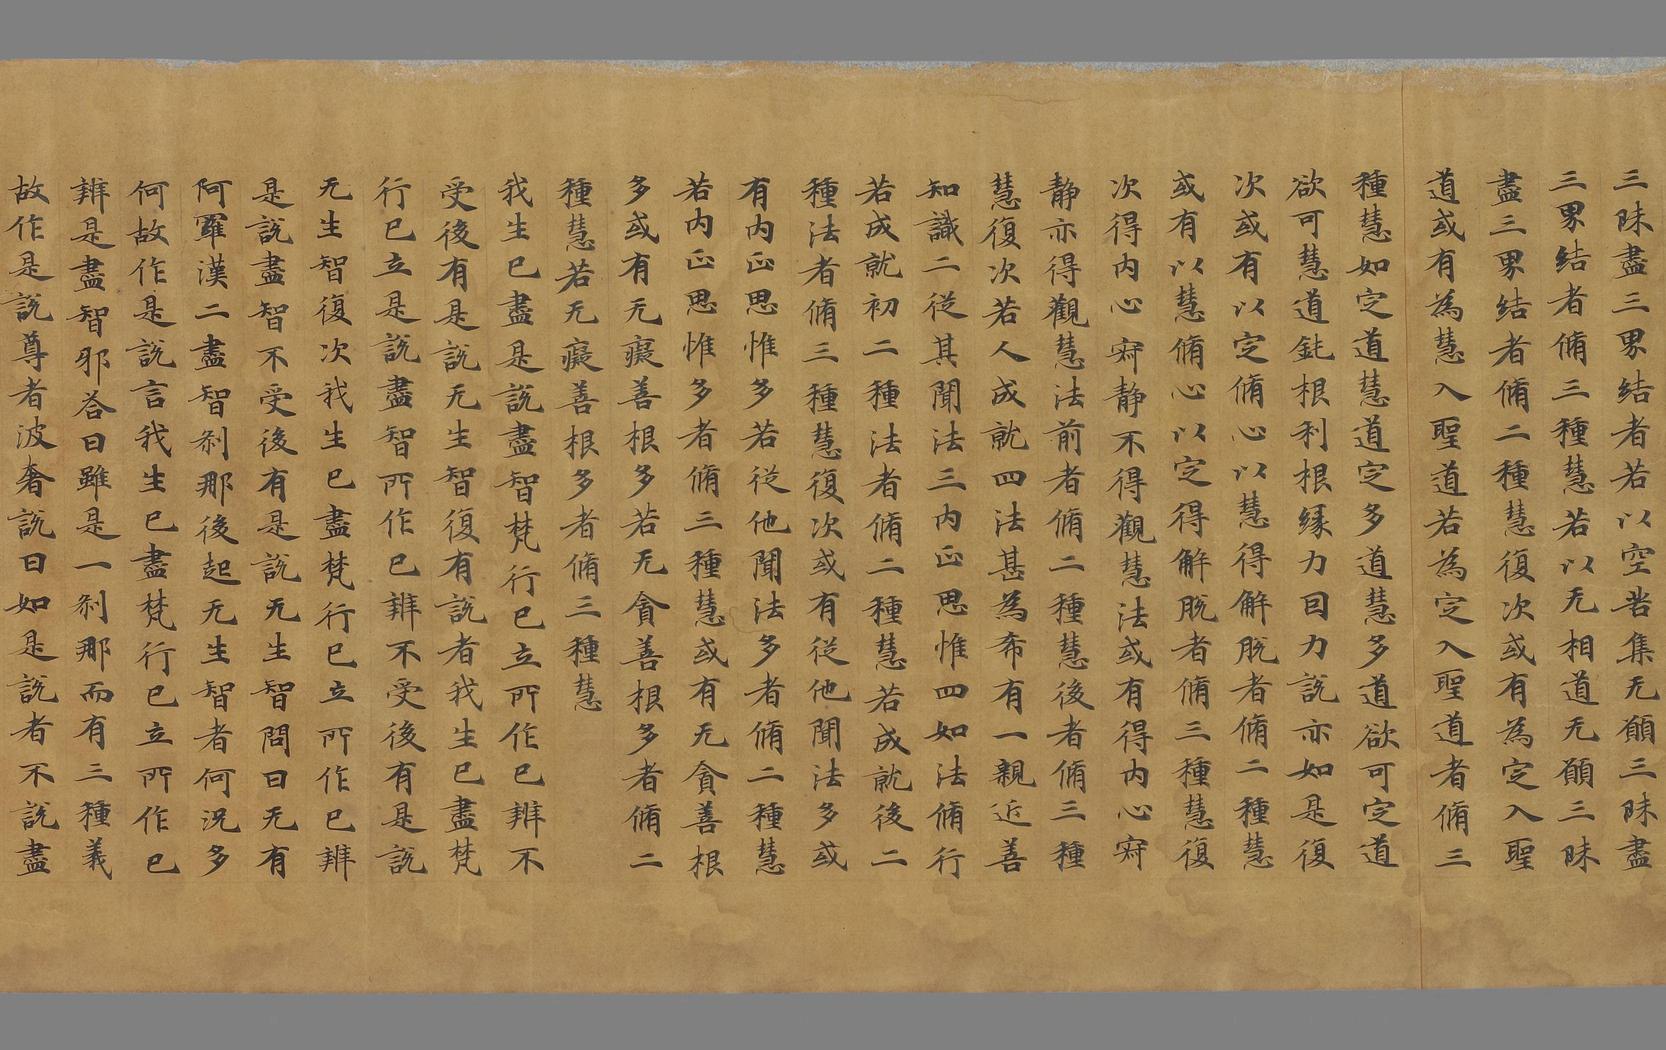 三昧盡三界結者若以空苦集无願三昧盡
三界結者脩三種慧若以无相道无願三昧
盡三界結者脩二種慧復次或有為定入聖
道或有為慧入聖道若為定入聖道者脩三
種慧如定道慧道定多道慧多道欲可定道
欲可慧道鈍根利根緣力因力說亦如是復
次或有以定脩心以慧得解脫者脩二種慧
或有以慧脩心以定得解脫者脩三種慧復
次得内心寂静不得觀慧法或有得内心寂
静亦得觀慧法前者脩二種慧後者脩三種
慧復次若人成就四法甚為希有一親近善
知識二從其聞法三内正思惟四如法脩行
若成就初二種法者脩二種慧若成就後二
種法者脩三種慧復次或有從他聞法多或
有内正思惟多若從他聞法多者脩二種慧
若内正思惟多者脩三種慧或有无貪善根
多或有无癡善根多若无貪善根多者脩二
種慧若无癡善根多者脩三種慧
我生已盡是說盡智梵行已立所作已辨不
受後有是說无生智復有說者我生已盡梵
行已立是說盡智所作已辨不受後有是說
无生智復次我生已盡梵行已立所作已辨
是說盡智不受後有是說无生智問曰无有
阿羅漢二盡智剎那後起无生智者何況多
何故作是說言我生已盡梵行已立所作已
辨是盡智邪答曰雖是一剎那而有三種義
故作是說尊者波奢說曰如是說者不說盡